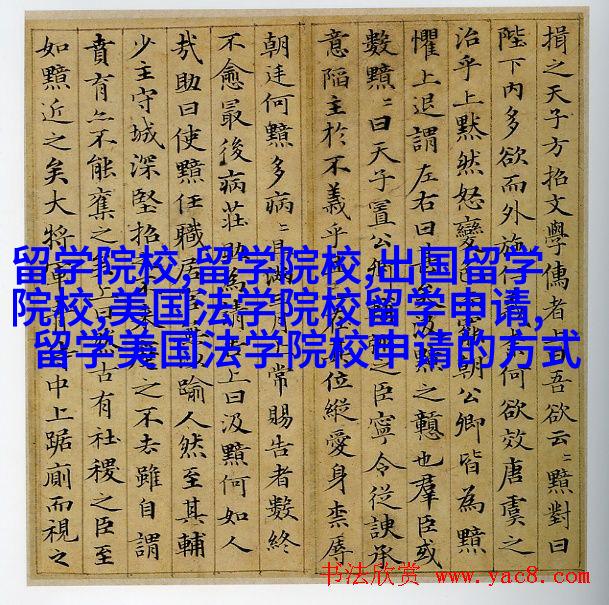 損之天子方招文學儒者 吾欲云〻黯對曰
陛下内多欲而外施 何欲效唐虞之
治乎上默然怒變 朝公卿皆為黯
懼上退謂左右曰 黯之戇也羣臣或
數黯〻曰天子置公 之臣寧令從諛承
意陷主於不義乎 位縱愛身柰辱
朝廷何黯多病〻 常賜告者數終
不愈最後病莊助為請 上曰汲黯何如人
㢤助曰使黯任職居 踰人然至其輔
少主守城深堅招 之不去雖自謂
賁育亦不能奪之 古有社稷之臣至
如黯近之矣大將軍 中上踞廁而視之
留学院校,留学院校,出国留学
院校,美国法学院校留学申请,
留学美国法学院校申请的方式
书法欣赏 www.yac8.com